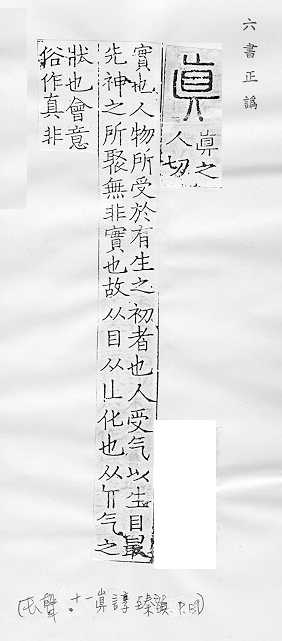 六書正譌
眞
眞之
人切
實也人物所受於有生之初者也人受气以生目最
先神之所聚無非實也故从目从匕化也从丌气之
狀也會意
俗作真非
聲。十一眞諄臻韻